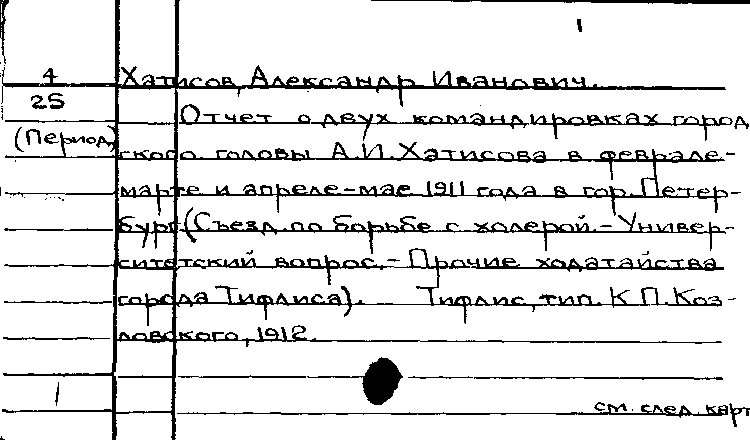 1
4 Хатисов, Александр Иванович.
25
Отчет о двух командировках город
(Период)
ского головы А.И.Хатисова в феврале-
марте и апреле-мае 1911 года в гор.Петер-
бург(Съезд по борьбе с холерой.-Универ-
ситетский вопрос.-Прочие ходатайства
города Тифлиса). Тифлис, тип. К.П.Коз-
ловского, 1912.
1
см. след. карт